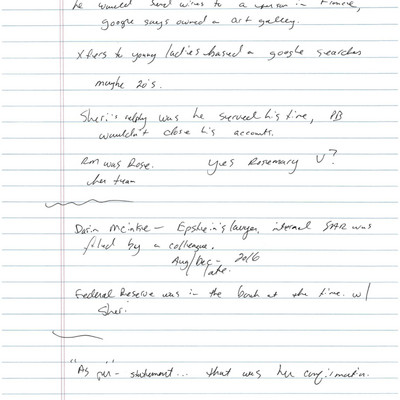 he would send wires to a person in France,
google says owned an art gallery.
Xfers to young ladies based on google searches
maybe 20's.
Sheri's reply was he served his time, PB
wouldn't close his accounts.
RM was Rose. yes Rosemary V?
her team
Darin McIntire — Epshein's lawyer, internal SAR was
filed by a colleague.
Aug/Dec - 2016
late.
Federal Reserve was in the bank at the time. w/
Sheri.
"As per - statement... that was her confirmation.